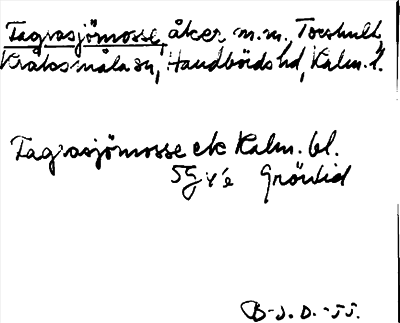 Tagrasjömosse, åker m.m. Toeshult,
Kråksmåla sn, Handbörds hd, Kalm. l.
Tagrasjömosse ek Kalm. bl.
5G y'e Gröntid
B-J. D. -55.